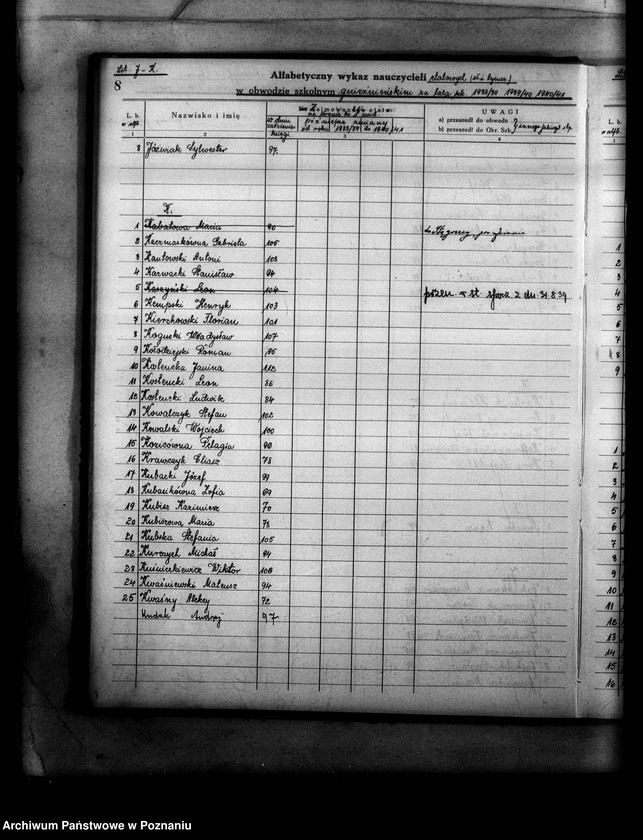 Lit. J - K.
8
Alfabetyczny wykaz nauczycieli etatowych
w obwodzie szkolnym gnieźnieńskim na lata szk. 1938/39 1939/40 1940/41
L. b. Nazwisko i imię w dniu założenia księgi późniejsze zmiany od roku 1938/39 do 1940/41 UWAGI
a) przeszedł do obwodu
b) przeszedł do Okr. Szk.
1 2 3 4
8 Jóźwiak Sylwester 97.
K.
1 Kabatowa Maria 90
2 Kaczmarkówna Gabriela 105
3 Kantowski Antoni 108
4 Karwacki Stanisław 94
5 Kaszyński Leon 104 z dn. 31.8.39
6 Kempski Henryk 103
7 Kierzkowski Florian 101
8 Kogucki Władysław 107
9 Kołodziejski Roman
10 Koslencka Janina 112
11 Koslencki Leon 86
12 Koslencki Ludwik 84
13 Kowalczyk Stefan 102
14 Kowalski Wojciech 100
15 Kozicówna Pelagia
16 Krawczyk Eliasz 78
17 Kubacki Józef 97
18 Kubankówna Zofia 69
19 Kubisz Kazimierz 70
20 Kubiszowa Maria 78
21 Kubska Stefania 105
22 Kurczych Michał 84
23 Kuśnierkiewicz Wiktor 108
24 Kwaśniewski Mateusz 94
25 Kwaśny Aleksy 72
Kudak Andrzej 97
1
2
3
4
5
6
7
8
9
1
2
3
4
5
6
7
8
9
10
11
12
13
14
15
16
Archiwum Państwowe w Poznaniu